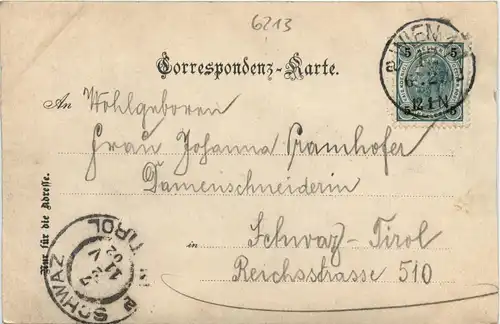 6213
5 5
WIEN
Correspondenz-Karte.
An Wohlgeboren
Frau Johanna Pramhofer
Damenschneiderin
in Schwaz-Tirol
Reichsstrasse 510
Nur für die Adresse.
SCHWAZ TIROL
11
V
02